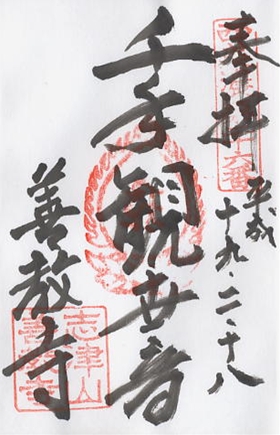 奉拝
平成十九・二・十八
千手観世音
善教寺
志津山